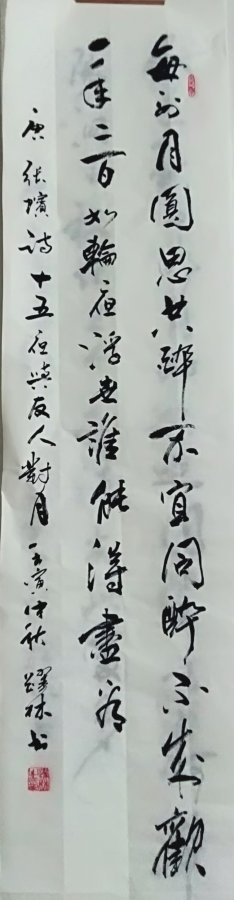 每到月圓思共醉不宜同醉不成歡
一年二百如輪夜浮世誰能得盡看
唐張蠙詩十五夜與友人對月壬寅仲秋躍林書